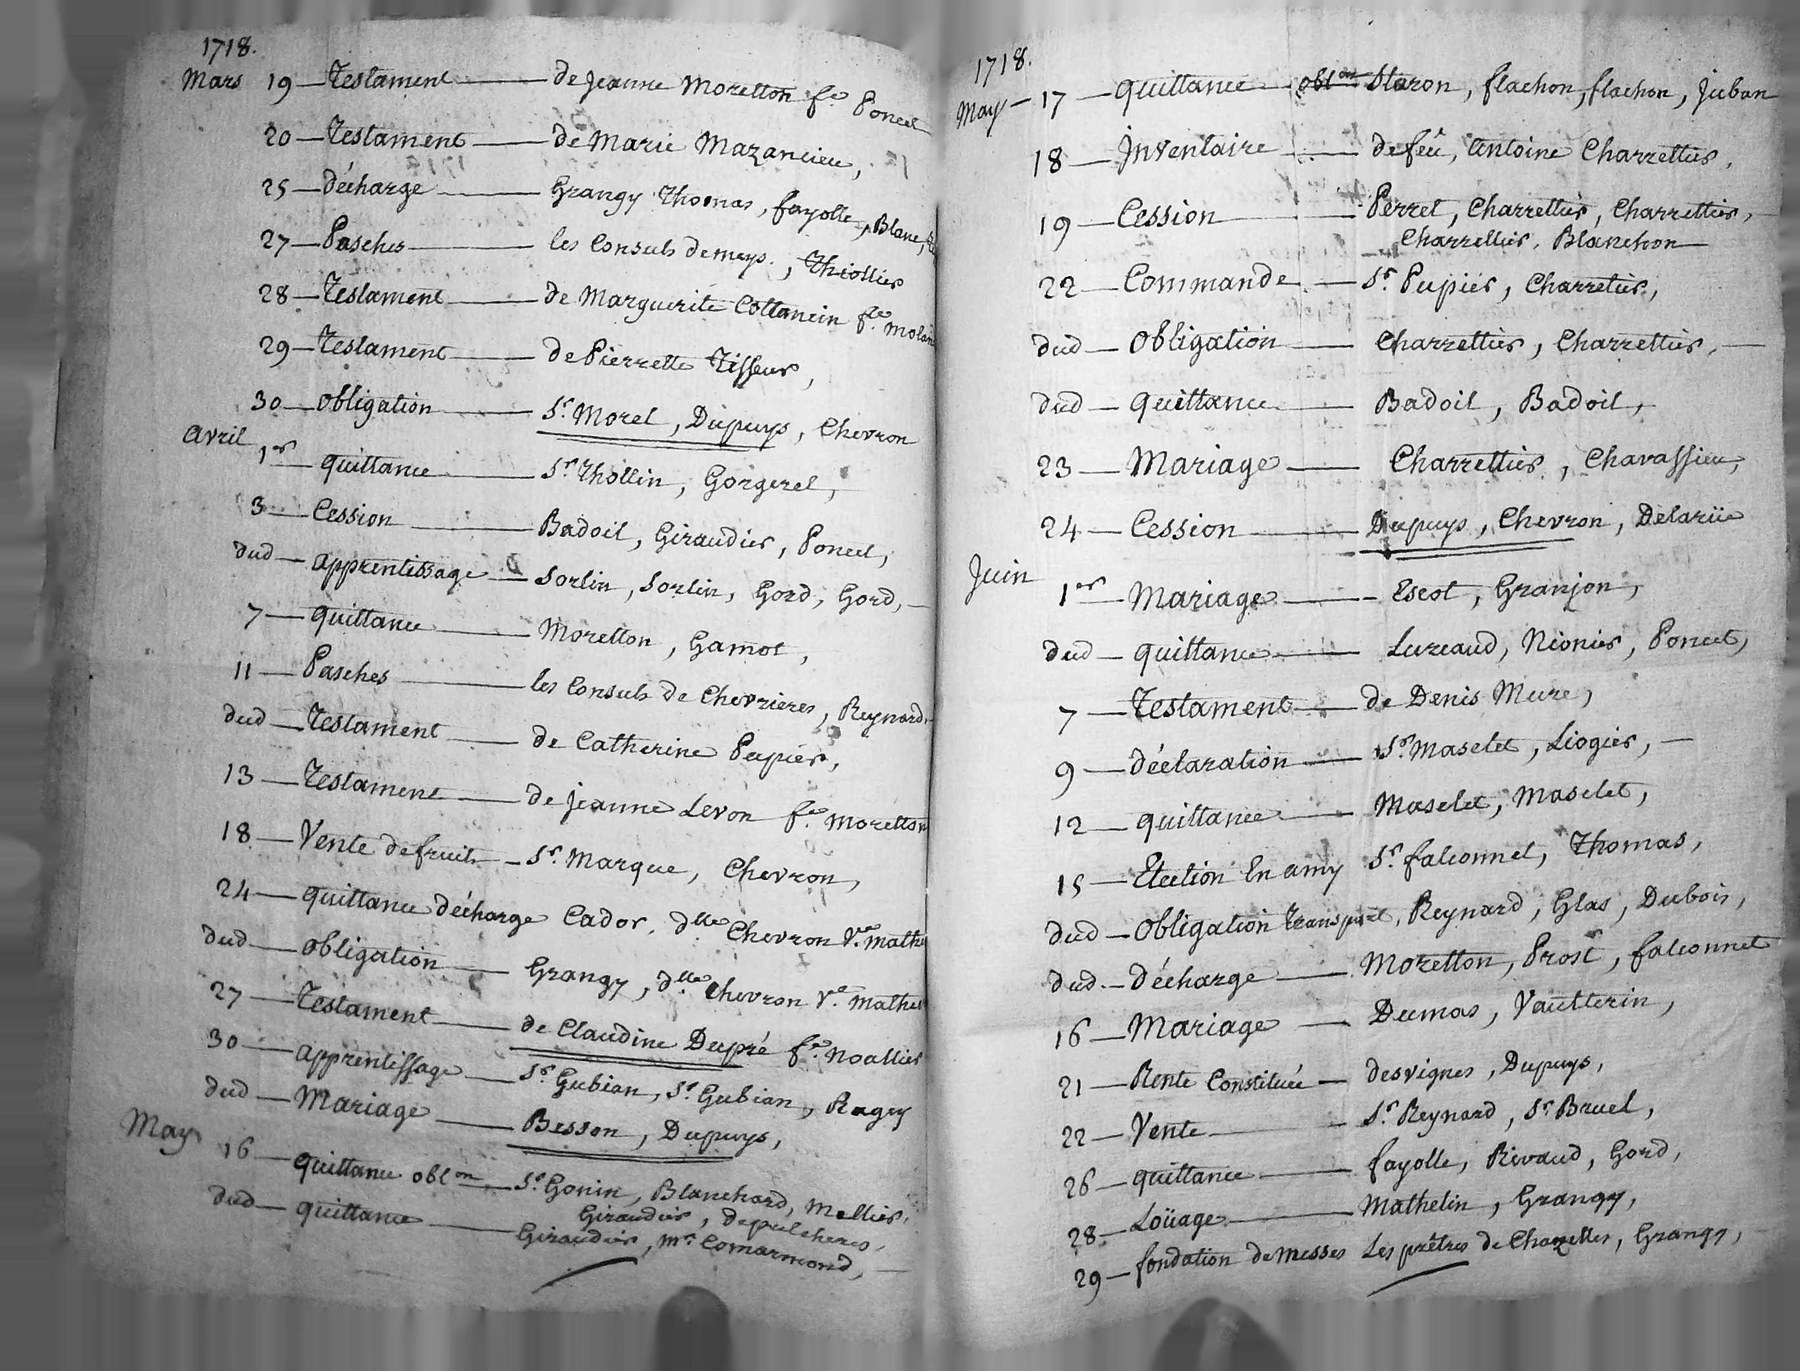 1718.
Mars 19 — Testament — de Jeanne Moretton fe. Poncet
20 — Testament — de Marie Mazancieu,
25 — décharge — Grangy Thomas, fayolle, Blanc,
27 — Pasches — les Consuls de meys, Thiollier
28 — Testament — de Marguerite Cottancin fe.
29 — Testament — de Pierrette Tisseur,
30 — obligation — Sr. Morel, Dupuys, Chevron
avril 1er — quittance — Sr Thollin, Gorgeret,
3 — Cession — Badoil, Giraudier, Poncet,
dud — apprentissage — Sorlin, Sorlin, Gord, Gord, —
7 — quittance — Moretton, Gamot,
11 — Pasches — les Consuls de Chevrieres, Reynard,
dud — Testament — de Catherine Pupier,
13 — Testament — de jeanne Levon fe. Moretton
18 — Vente de fruits — Sr. Marque, Chevron,
24 — quittance décharge Cador, dlle Chevron Ve. Mathe
dud — obligation — Grangy, dlle Chevron Ve. Mathe
27 — Testament — de Claudine Dupré fe. Noallier
30 — apprentissage — Sr Gubian, Sr Gubian, Ragey
dud — Mariage — Besson, Dupuys,
May 16 — quittance oblon — Sr Gonin, Blanchard, Mellier,
Giraudier, depulcheres,
dud — quittance — Giraudier, Mr Comarmond, —
1718.
May — 17 — quittance — oblon Staron, flachon, flachon, Juban
18 — Inventaire — de feu, antoine Charrettier,
19 — Cession — Perret, Charrettier, Charrettier, —
Charrettier, Blanchon
22 — Commande — Sr. Pupier, Charretier,
dud — obligation — Charrettier, Charrettier, —
dud — quittance — Badoil, Badoil,
23 — Mariage — Charrettier, Chavassieu,
24 — Cession — Dupuys, Chevron, Delarüe
Juin 1er — Mariage — Escot, Granjon,
dud — quittance — Lureaud, Nionier, Poncet,
7 — Testament — de Denis Mure,
9 — déclaration — Sr. Maselet, Liogier, —
12 — quittance — Maselet, Maselet,
15 — Election En amy Sr. falconnet, Thomas,
dud — obligation Transport, Reynard, Glas, Dubois,
dud. — décharge — Moretton, Prost, falconnet
16 — Mariage — Dumas, Vautterin,
21 — Rente Constituée — desvignes, Dupuys,
22 — Vente — Sr Reynard, Sr Bruel,
26 — quittance — fayolle, Rivaud, Gord,
28 — Loüage — Mathelin, Grangy,
29 — fondation de messes Les prêtres de Chazelles, Grangy, —